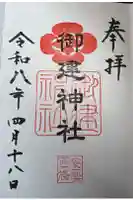 奉拝
御建神社
令和八年四月十八日